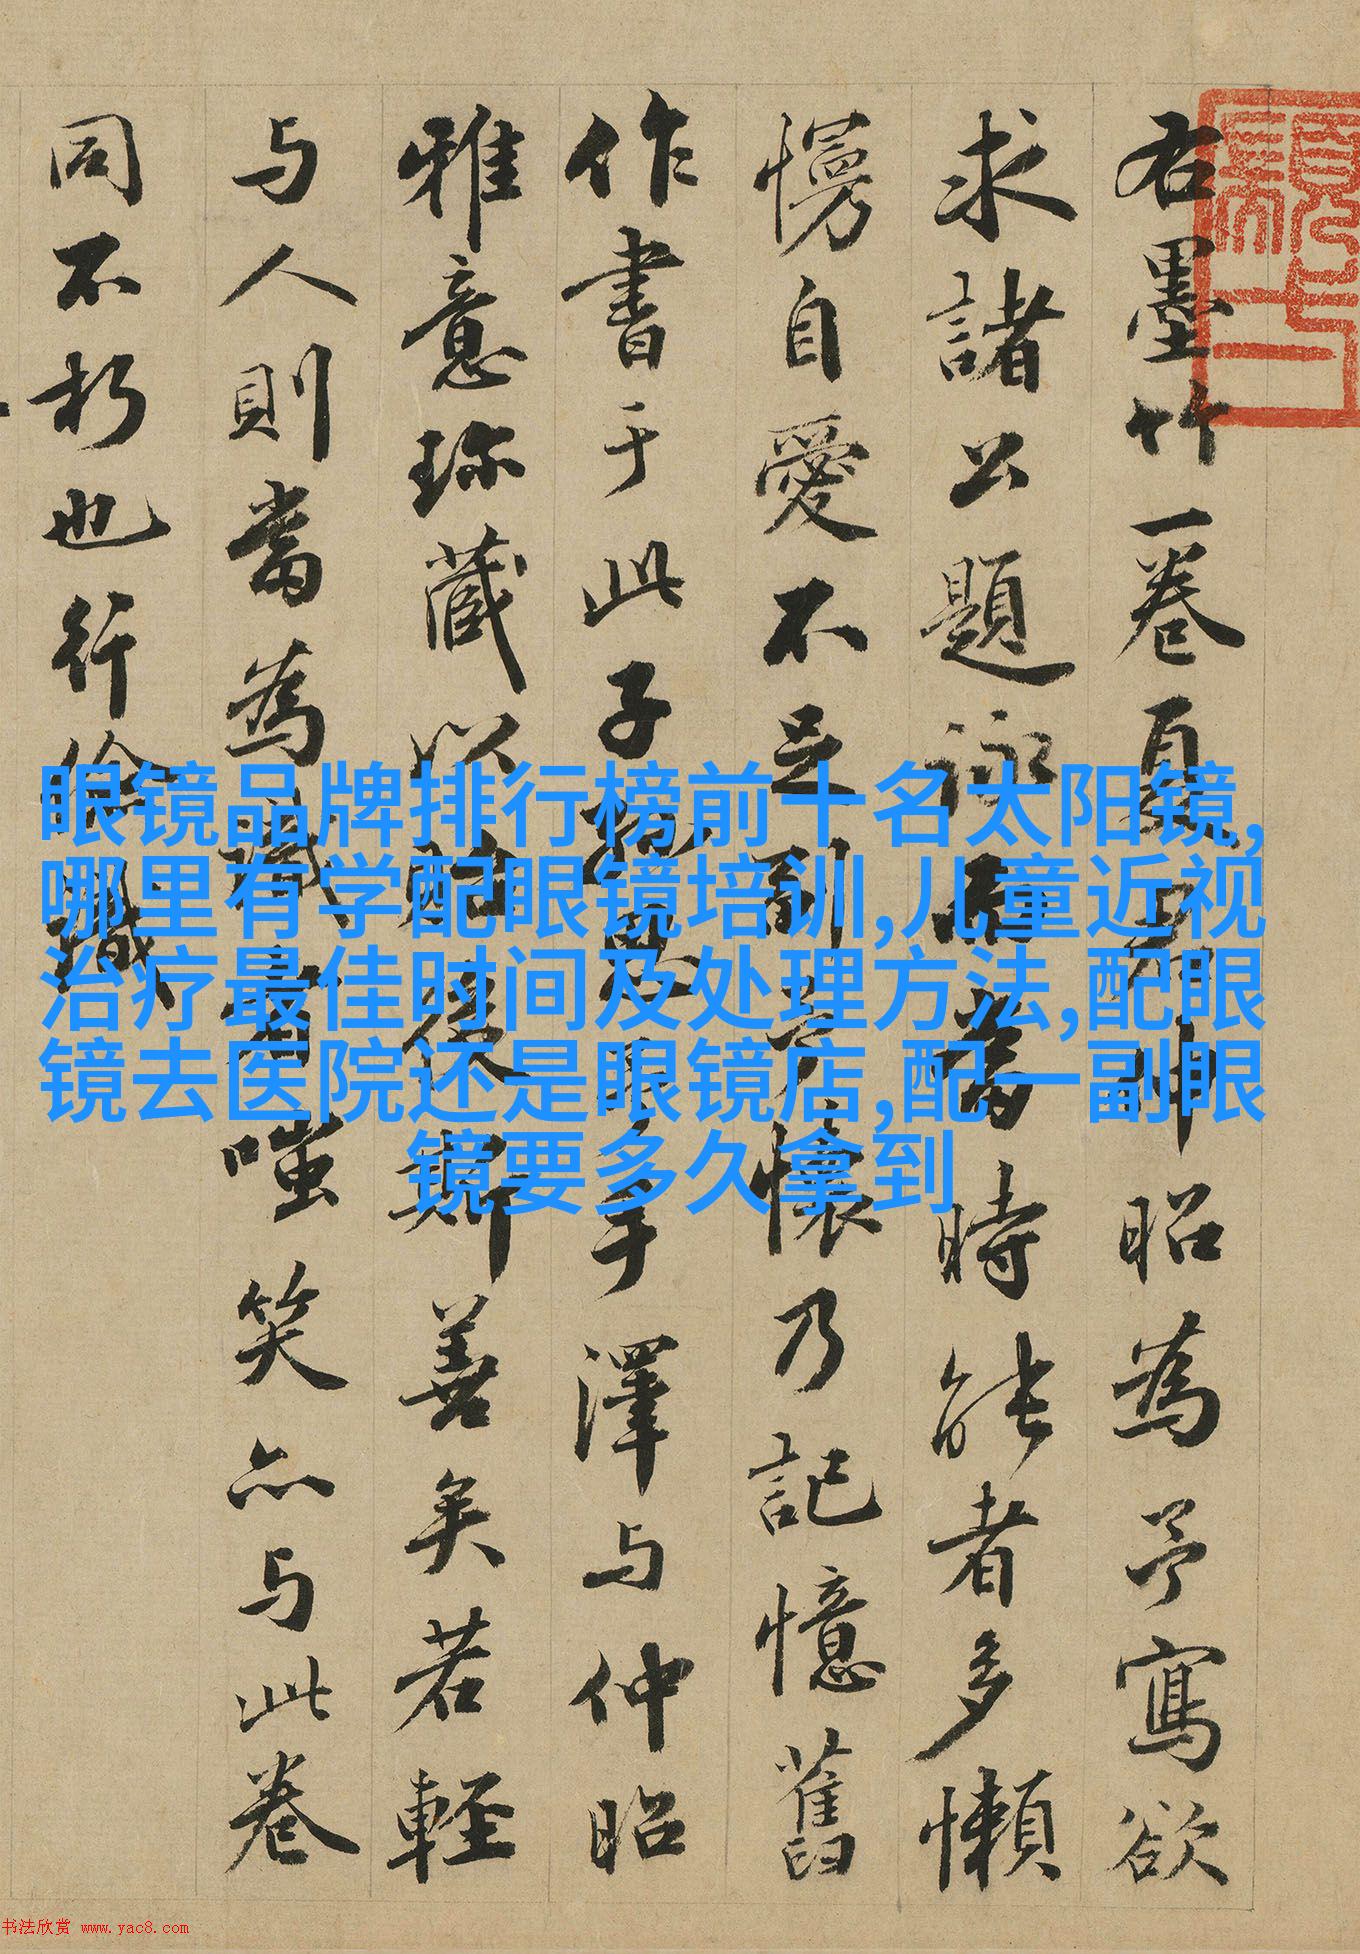 右墨竹一卷夏仲昭為予寫欲
求諸公題詠而當時能者多懶
慢自愛不足副吾懷乃記憶舊
作書于此子孫手澤与仲昭
雅意珍藏以後斯善矣若輕
与人則當為識者嗤笑亦与此卷
同不朽也行儉識
眼镜品牌排行榜前十名太阳镜,
哪里有学配眼镜培训,儿童近视
治疗最佳时间及处理方法,配眼
镜去医院还是眼镜店,配一副眼
镜要多久拿到
书法欣赏 www.yac8.com